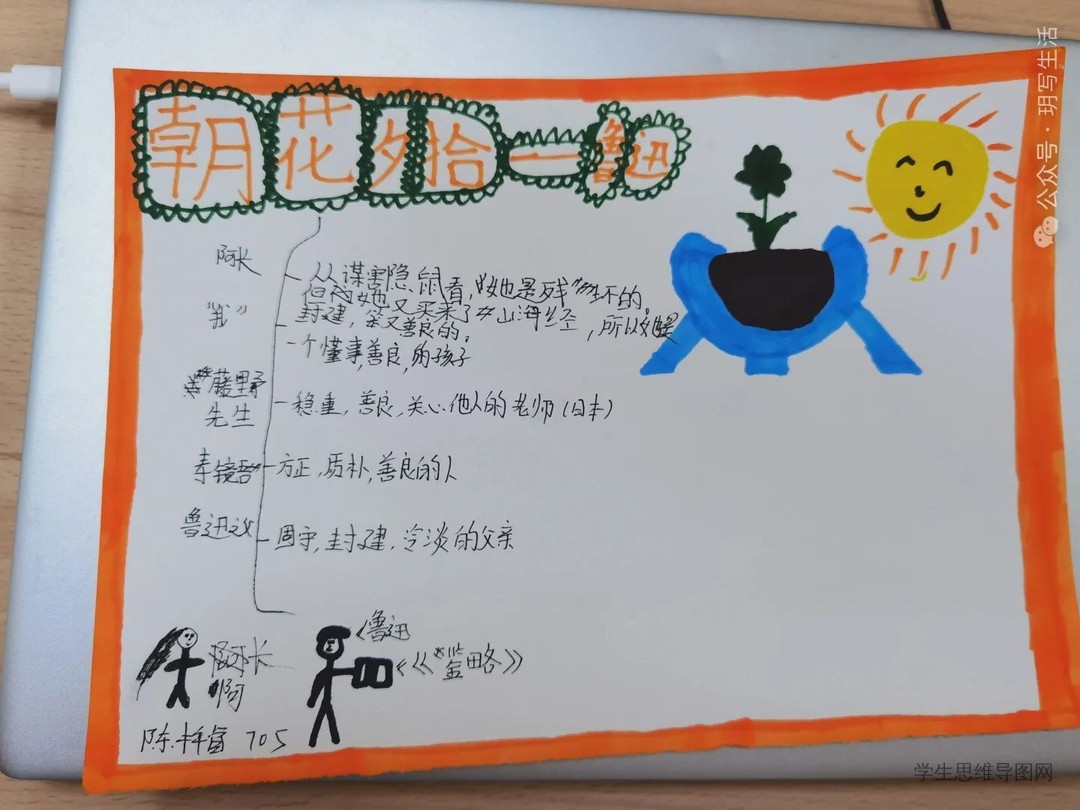 朝花夕拾—鲁迅
阿长
从谋害隐鼠看，她是残坏的。
但为她又买来了山海经，所以她是
封建，笨又善良的。
"我"
一个懂事，善良，的孩子
藤野
先生
稳重，善良，关心他人的老师（日本）
寿镜吾
方正，质朴，善良的人
鲁迅父
固守，封建，冷淡的父亲
鲁迅
阿长
啊
《鉴略》
705
公众号·玥写生活
学生思维导图网